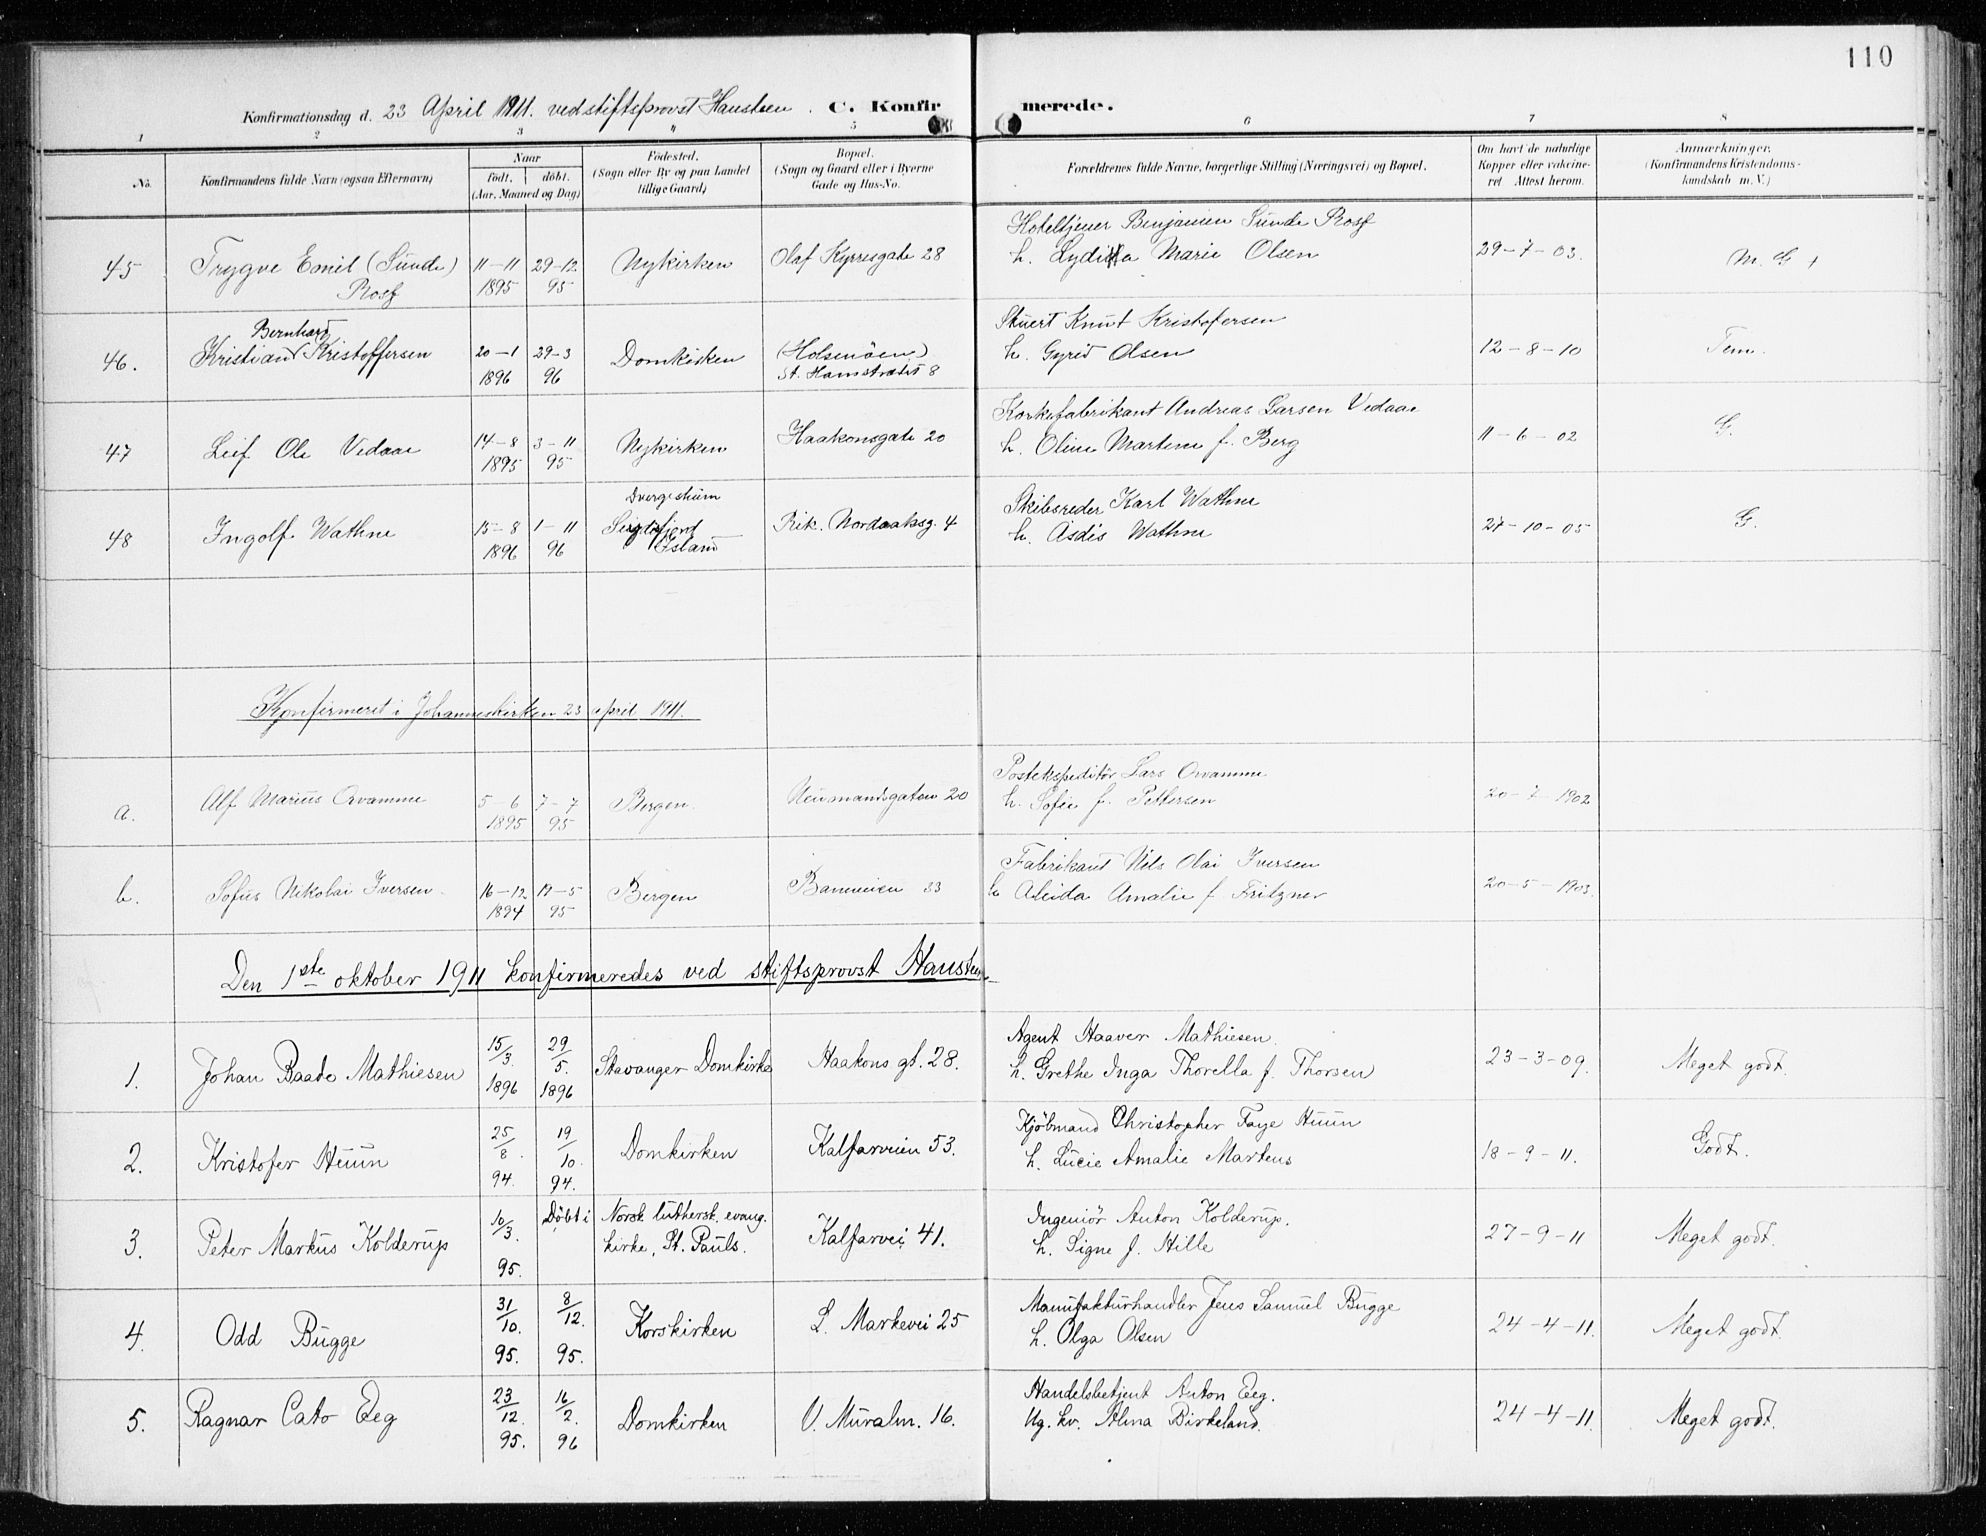 110
Konfirmationsdag d. 23 April 1911. ved stiftsprovst Hansteen. C. Konfirmerede.
1 2 3 4 5 6 7 8
No. Konfirmandens fulde Navn (ogsaa Efternavn) Naar födt, döbt. (Aar, Maaned og Dag) Födested. (Sogn eller By og paa Landet tillige Gaard) Bopæl. (Sogn og Gaard eller i Byerne Gade og Hus-No. Forældrenes fulde Navne, borgerlige Stilling (Næringsvei) og Bopæl. Om havt de naturlige Kopper eller vakcineret. Attest herom. Anmærkninger. (Konfirmandens Kristendomskundskab m. V.)
45 Trygve Emil (Sunde) Rosf 11-11 1895 29-12 95 Nykirken Olaf Kyrresgate 28 Hoteltjener Benjamin Sunde Rosf
h. Lydia Marie Olsen 29-7-03. M. G +
46. Kristian Bernhard Kristoffersen 20-1 1896 29-3 96 Domkirken (Holsenöen) St. Hansstrædet 8 Stuert Knut Kristofersen
h. Gyrid Olsen 12-8-10 Tem.
47 Leif Ole Vedaae 14-8 1895 3-11 95 Nykirken Haakonsgate 20 Korkefabrikant Andreas Larsen Vedaae
h. Oline Martine f. Berg 11-6-02 G.
48 Ingolf Wathne 15-8 1896 1-11 96 Seydisfjord Island Rik. Nordraaksg. 4 Skibsreder Karl Wathne
h. Asdis Wathne 27-10-05 G.
Konfirmeret i Johanneskirken 23 april 1911.
a. Alf Marius Orvamme 5-6 1895 7-7 95 Bergen. Neumandsgaten 20 Postekspeditör Lars Orvamme
h. Sofie f. Pettersen 20-7-1902
b. Sofus Nikolai Iversen 16-12 1894 19-5 95 Bergen Baneveien 33 Fabrikant Nils Olai Iversen
h. Aleida Amalie f. Fritzner 20-5-1903.
Den 1ste oktober 1911 konfirmeredes ved stiftsprovst Hansteen
1. Johan Baade Mathiesen 15/3. 1896 29/5. 1896 Stavanger Domkirke Haakons gt. 28. Agent Haaver Mathiesen.
h. Grethe Inga Thorella f. Thorsen 23-3-09. Meget godt.
2. Kristofer Huun 25/8. 94. 19/10. 94. Domkirken Kalfarveien 53. Kjöbmand Christopher Faye Huun
h. Lucie Amalie Martens 18-9-11. Godt.
3. Peter Markus Kolderup 16/3. 95. Döbt i Norsk luthersk evang. kirke, St. Pauls. Kalfarvei 41. Ingeniör Anton Kolderup.
h. Signe f. Hille 27-9-11 Meget godt.
4. Odd Bugge 31/10. 95. 8/12. 95. Korskirken L. Markevei 25 Manufakturhandler Jens Samuel Bugge
h. Olga Olsen 24-4-11. Meget godt.
5. Ragnar Cato Eeg 23/12. 95. 16/2. 96 Domkirken V. Muralm. 16. Handelsbetjent Anton Eeg.
Ug. kv. Alma Birkeland. 24-4-11. Meget godt.